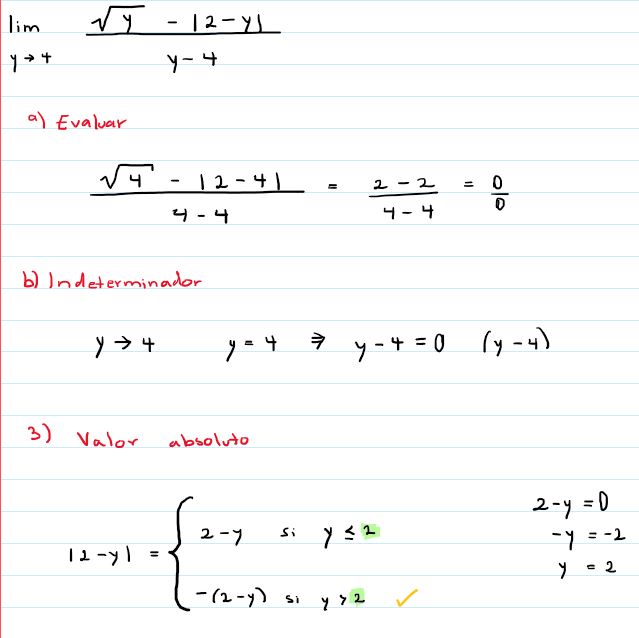 lim y→4 (√y - |2-y|)/(y-4)
a) Evaluar
(√4 - |2-4|)/(4-4) = (2-2)/(4-4) = 0/0
b) Indeterminador
y → 4 y = 4 ⇒ y-4 = 0 (y-4)
3) Valor absoluto
|2-y| = { 2-y si y ≤ 2
-(2-y) si y > 2 ✓
2-y = 0
-y = -2
y = 2